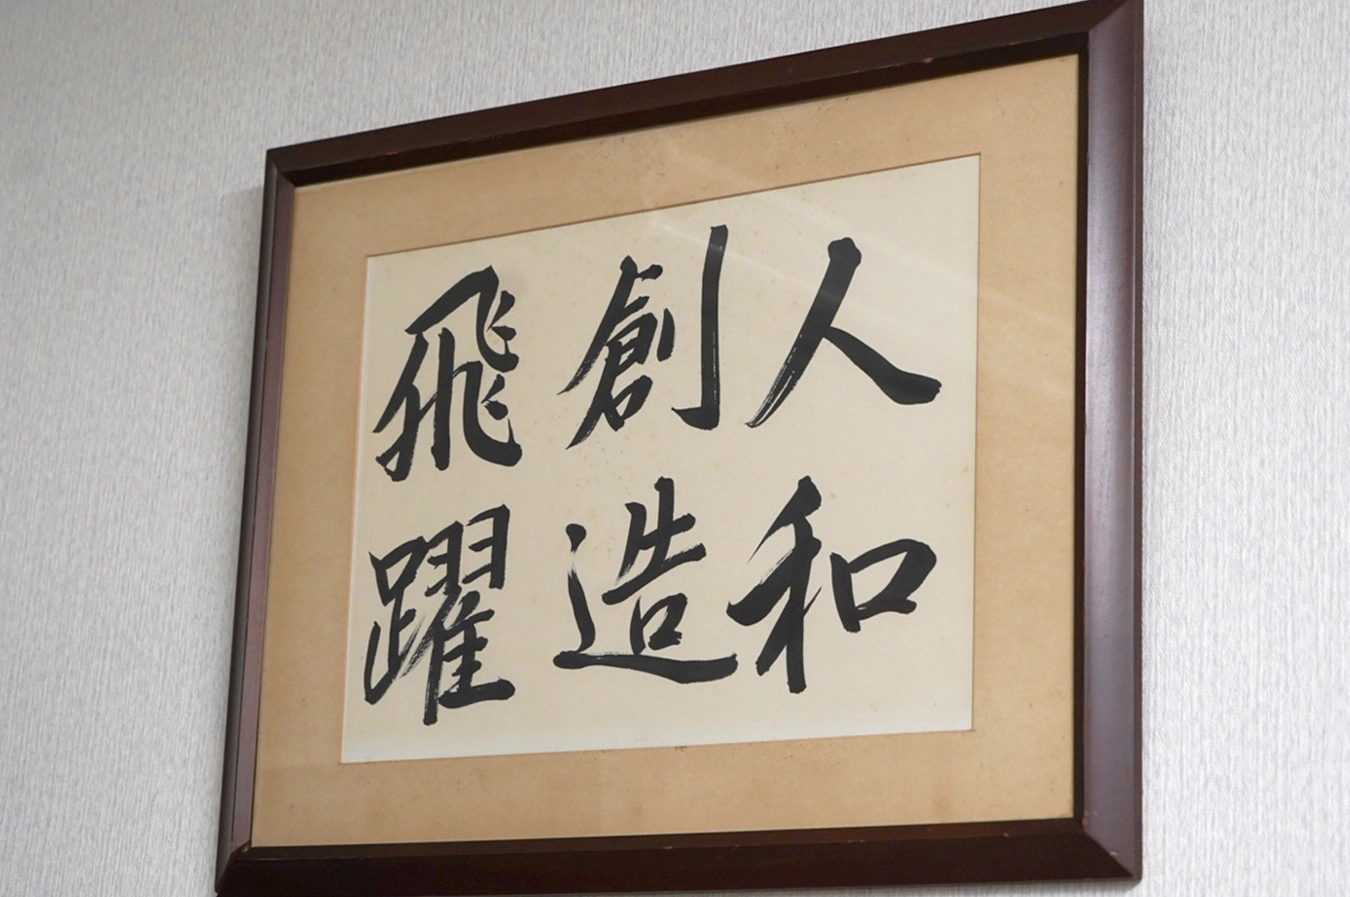 人和
創造
飛躍